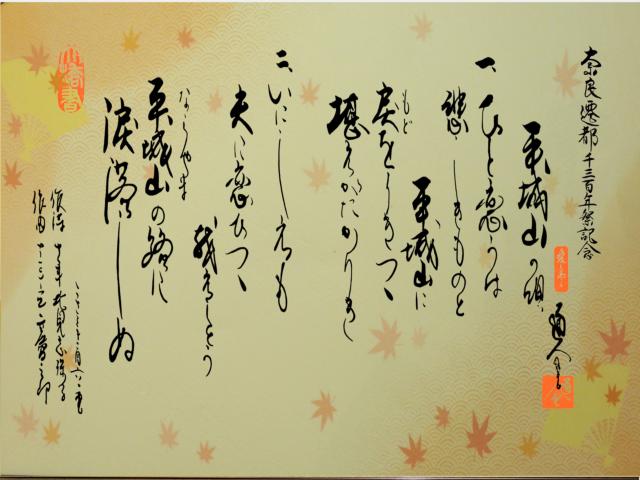 奈良遷都千三百年祭記念
平城山の唄
一、ひと恋うは
悲しきものと
平城山に
もど
戻をりきつゝ
堪えがたかりき
二、いにしえも
夫に恋ひつゝ
越ゑしとう
ならやま
平城山の路に
涙落しぬ
作詩 北見志保子